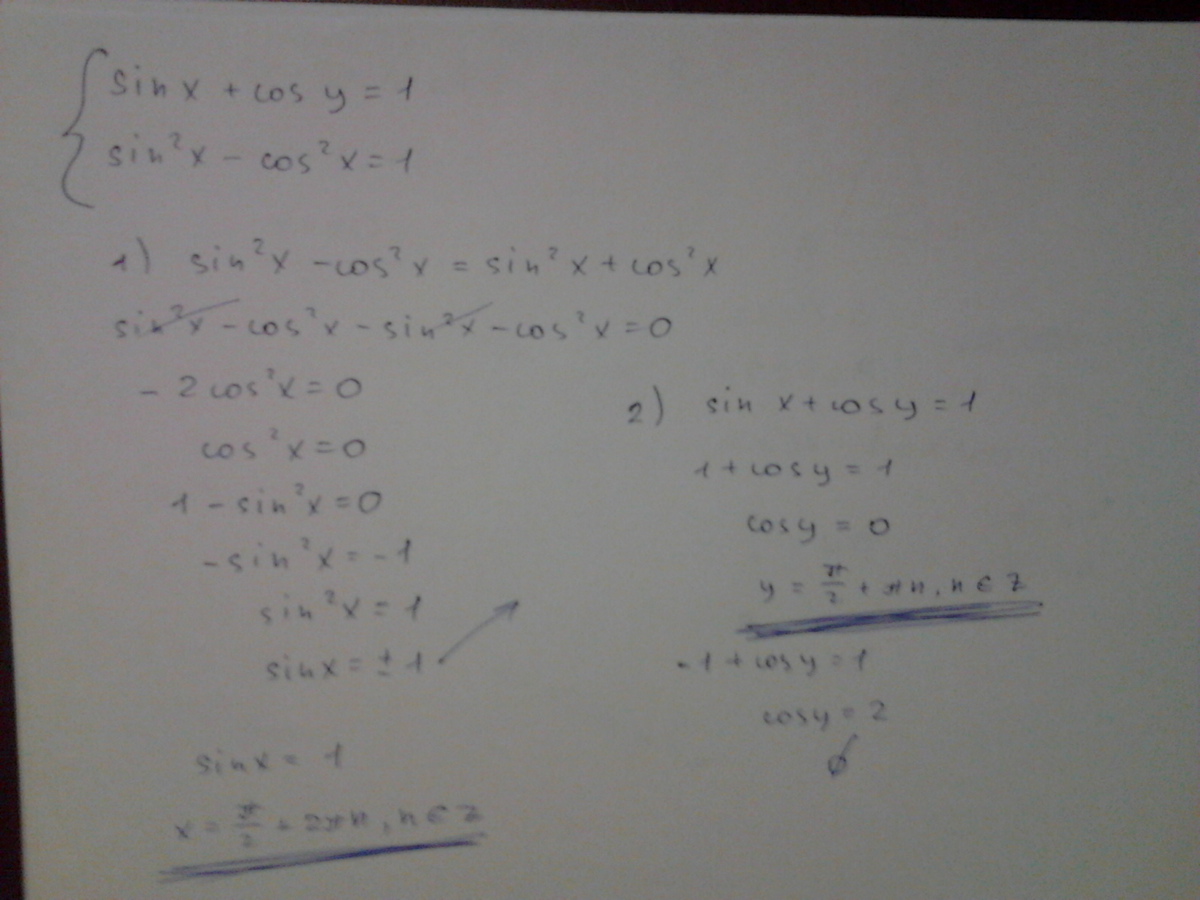 sin x + cos y = 1
sin²x - cos²x = 1
1) sin²x - cos²x = sin²x + cos²x
sin²x - cos²x - sin²x - cos²x = 0
- 2 cos²x = 0
cos²x = 0
1 - sin²x = 0
- sin²x = - 1
sin²x = 1
sin x = ± 1
sin x = 1
x = π/2 + 2πn, n ∈ Z
2) sin x + cos y = 1
1 + cos y = 1
cos y = 0
y = π/2 + πn, n ∈ Z
-1 + cos y = 1
cos y = 2
∅